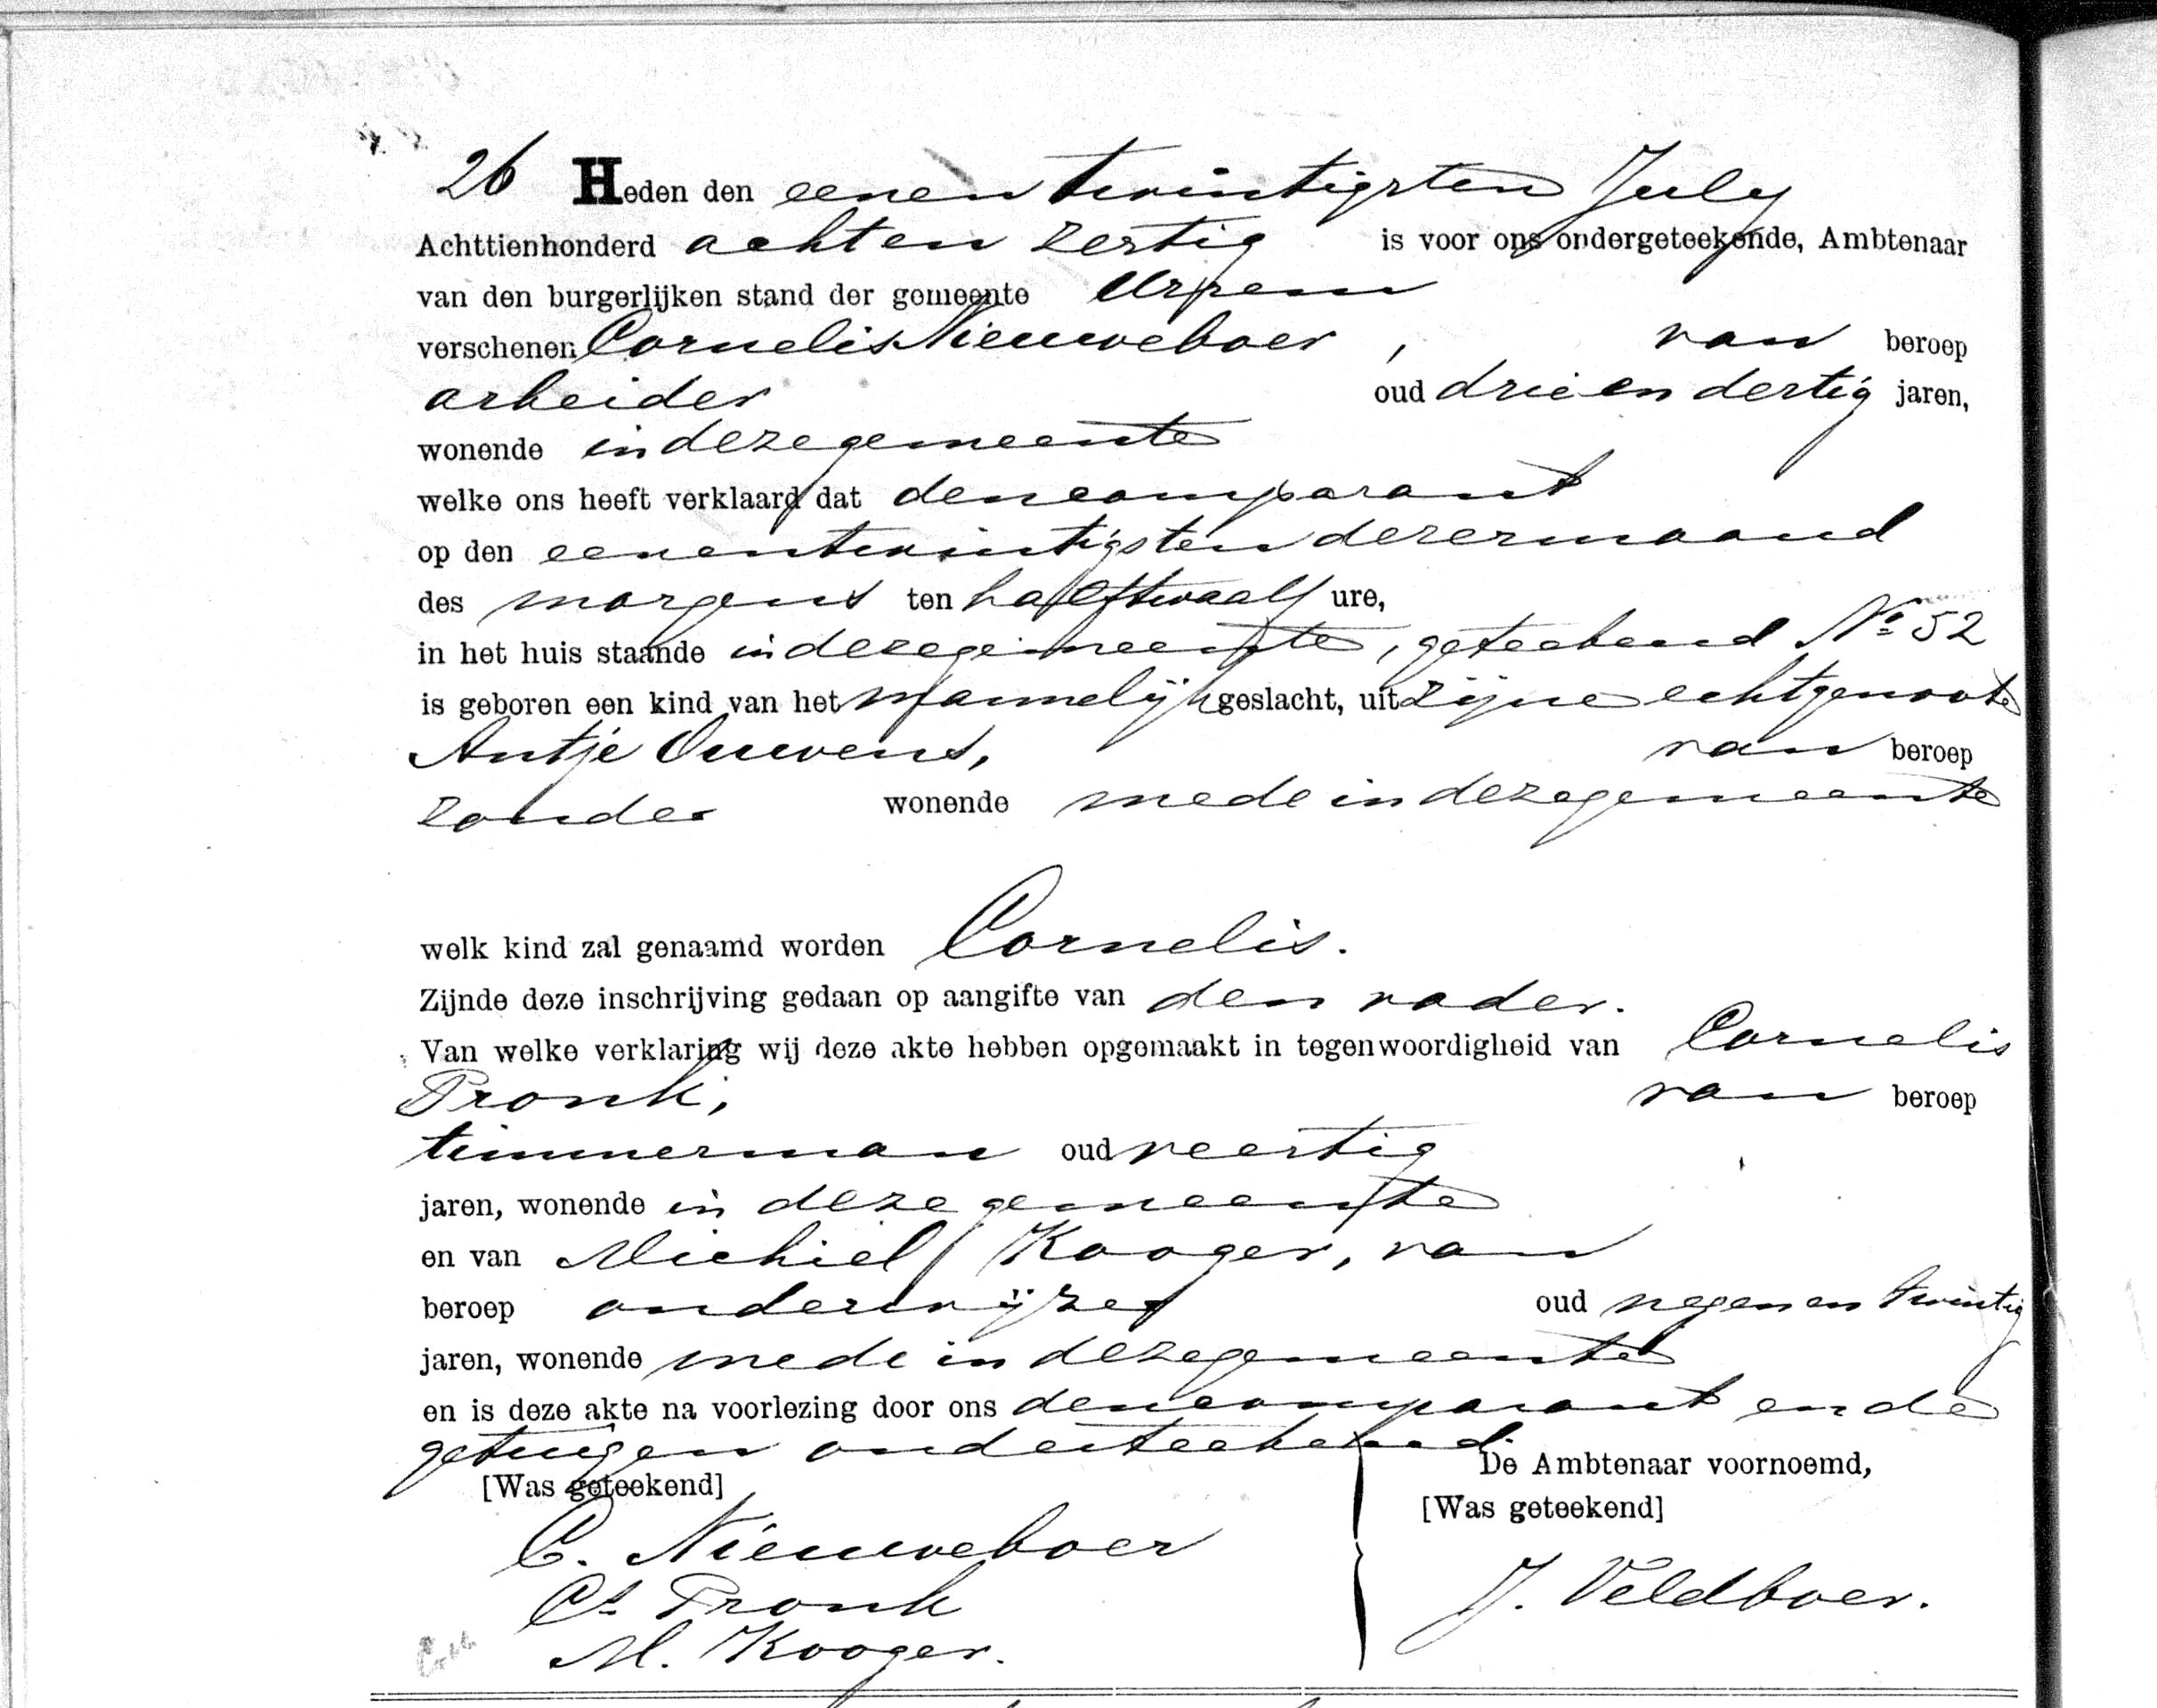 26 Heden den eenen twintigsten July
Achttienhonderd acht en zestig is voor ons ondergeteekende, Ambtenaar
van den burgerlijken stand der gemeente Ursem
verschenen Cornelis Nieuweboer, van beroep
arbeider oud drie en dertig jaren,
wonende in deze gemeente
welke ons heeft verklaard dat den comparant
op den eenentwintigsten dezer maand
des morgens ten half twaalf ure,
in het huis staande in deze gemeente, geteekend No 52
is geboren een kind van het mannelijk geslacht, uit zijne echtgenoote
Antje Ouwens, van beroep
zonder wonende mede in deze gemeente
welk kind zal genaamd worden Cornelis.
Zijnde deze inschrijving gedaan op aangifte van den vader.
Van welke verklaring wij deze akte hebben opgemaakt in tegenwoordigheid van Cornelis
Pronk, van beroep
timmerman oud veertig
jaren, wonende in deze gemeente
en van Michiel Kooger, van
beroep onderwijzer oud negen en twintig
jaren, wonende mede in deze gemeente
en is deze akte na voorlezing door ons den comparant en de
getuigen onderteekend.
De Ambtenaar voornoemd,
[Was geteekend]
[Was geteekend]
C. Nieuweboer
Cs Pronk
M. Kooger.
J. Veldboer.